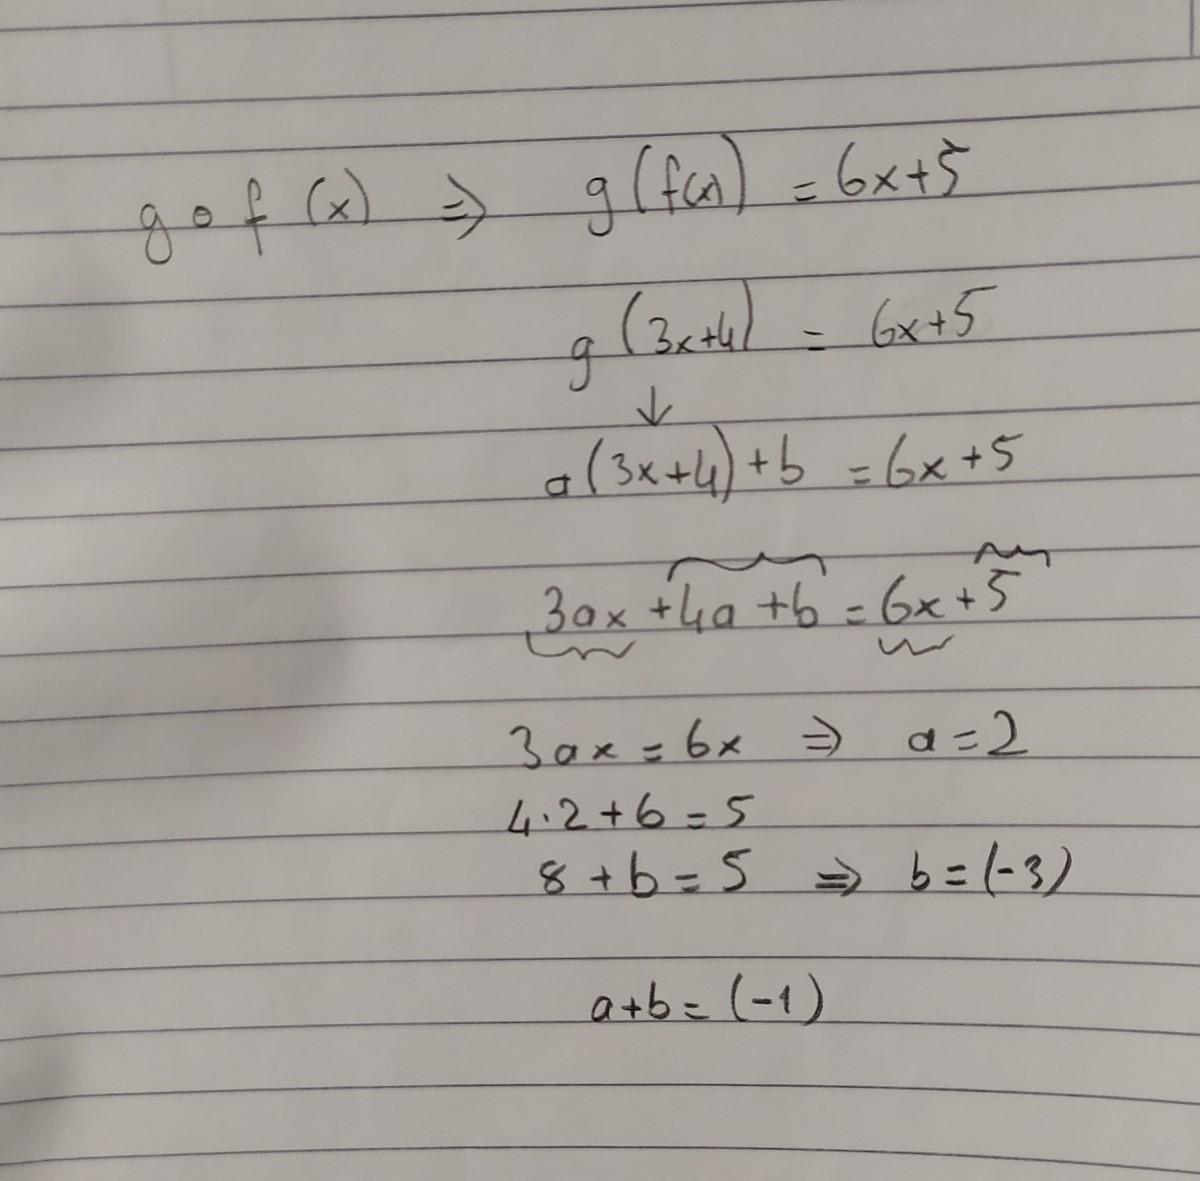 g o f (x) ⇒ g(f(x)) = 6x+5
g(3x+4) = 6x+5
↓
a(3x+4)+b = 6x+5
3ax+4a+b = 6x+5
3ax = 6x ⇒ a=2
4·2+b = 5
8+b = 5 ⇒ b=(-3)
a+b = (-1)